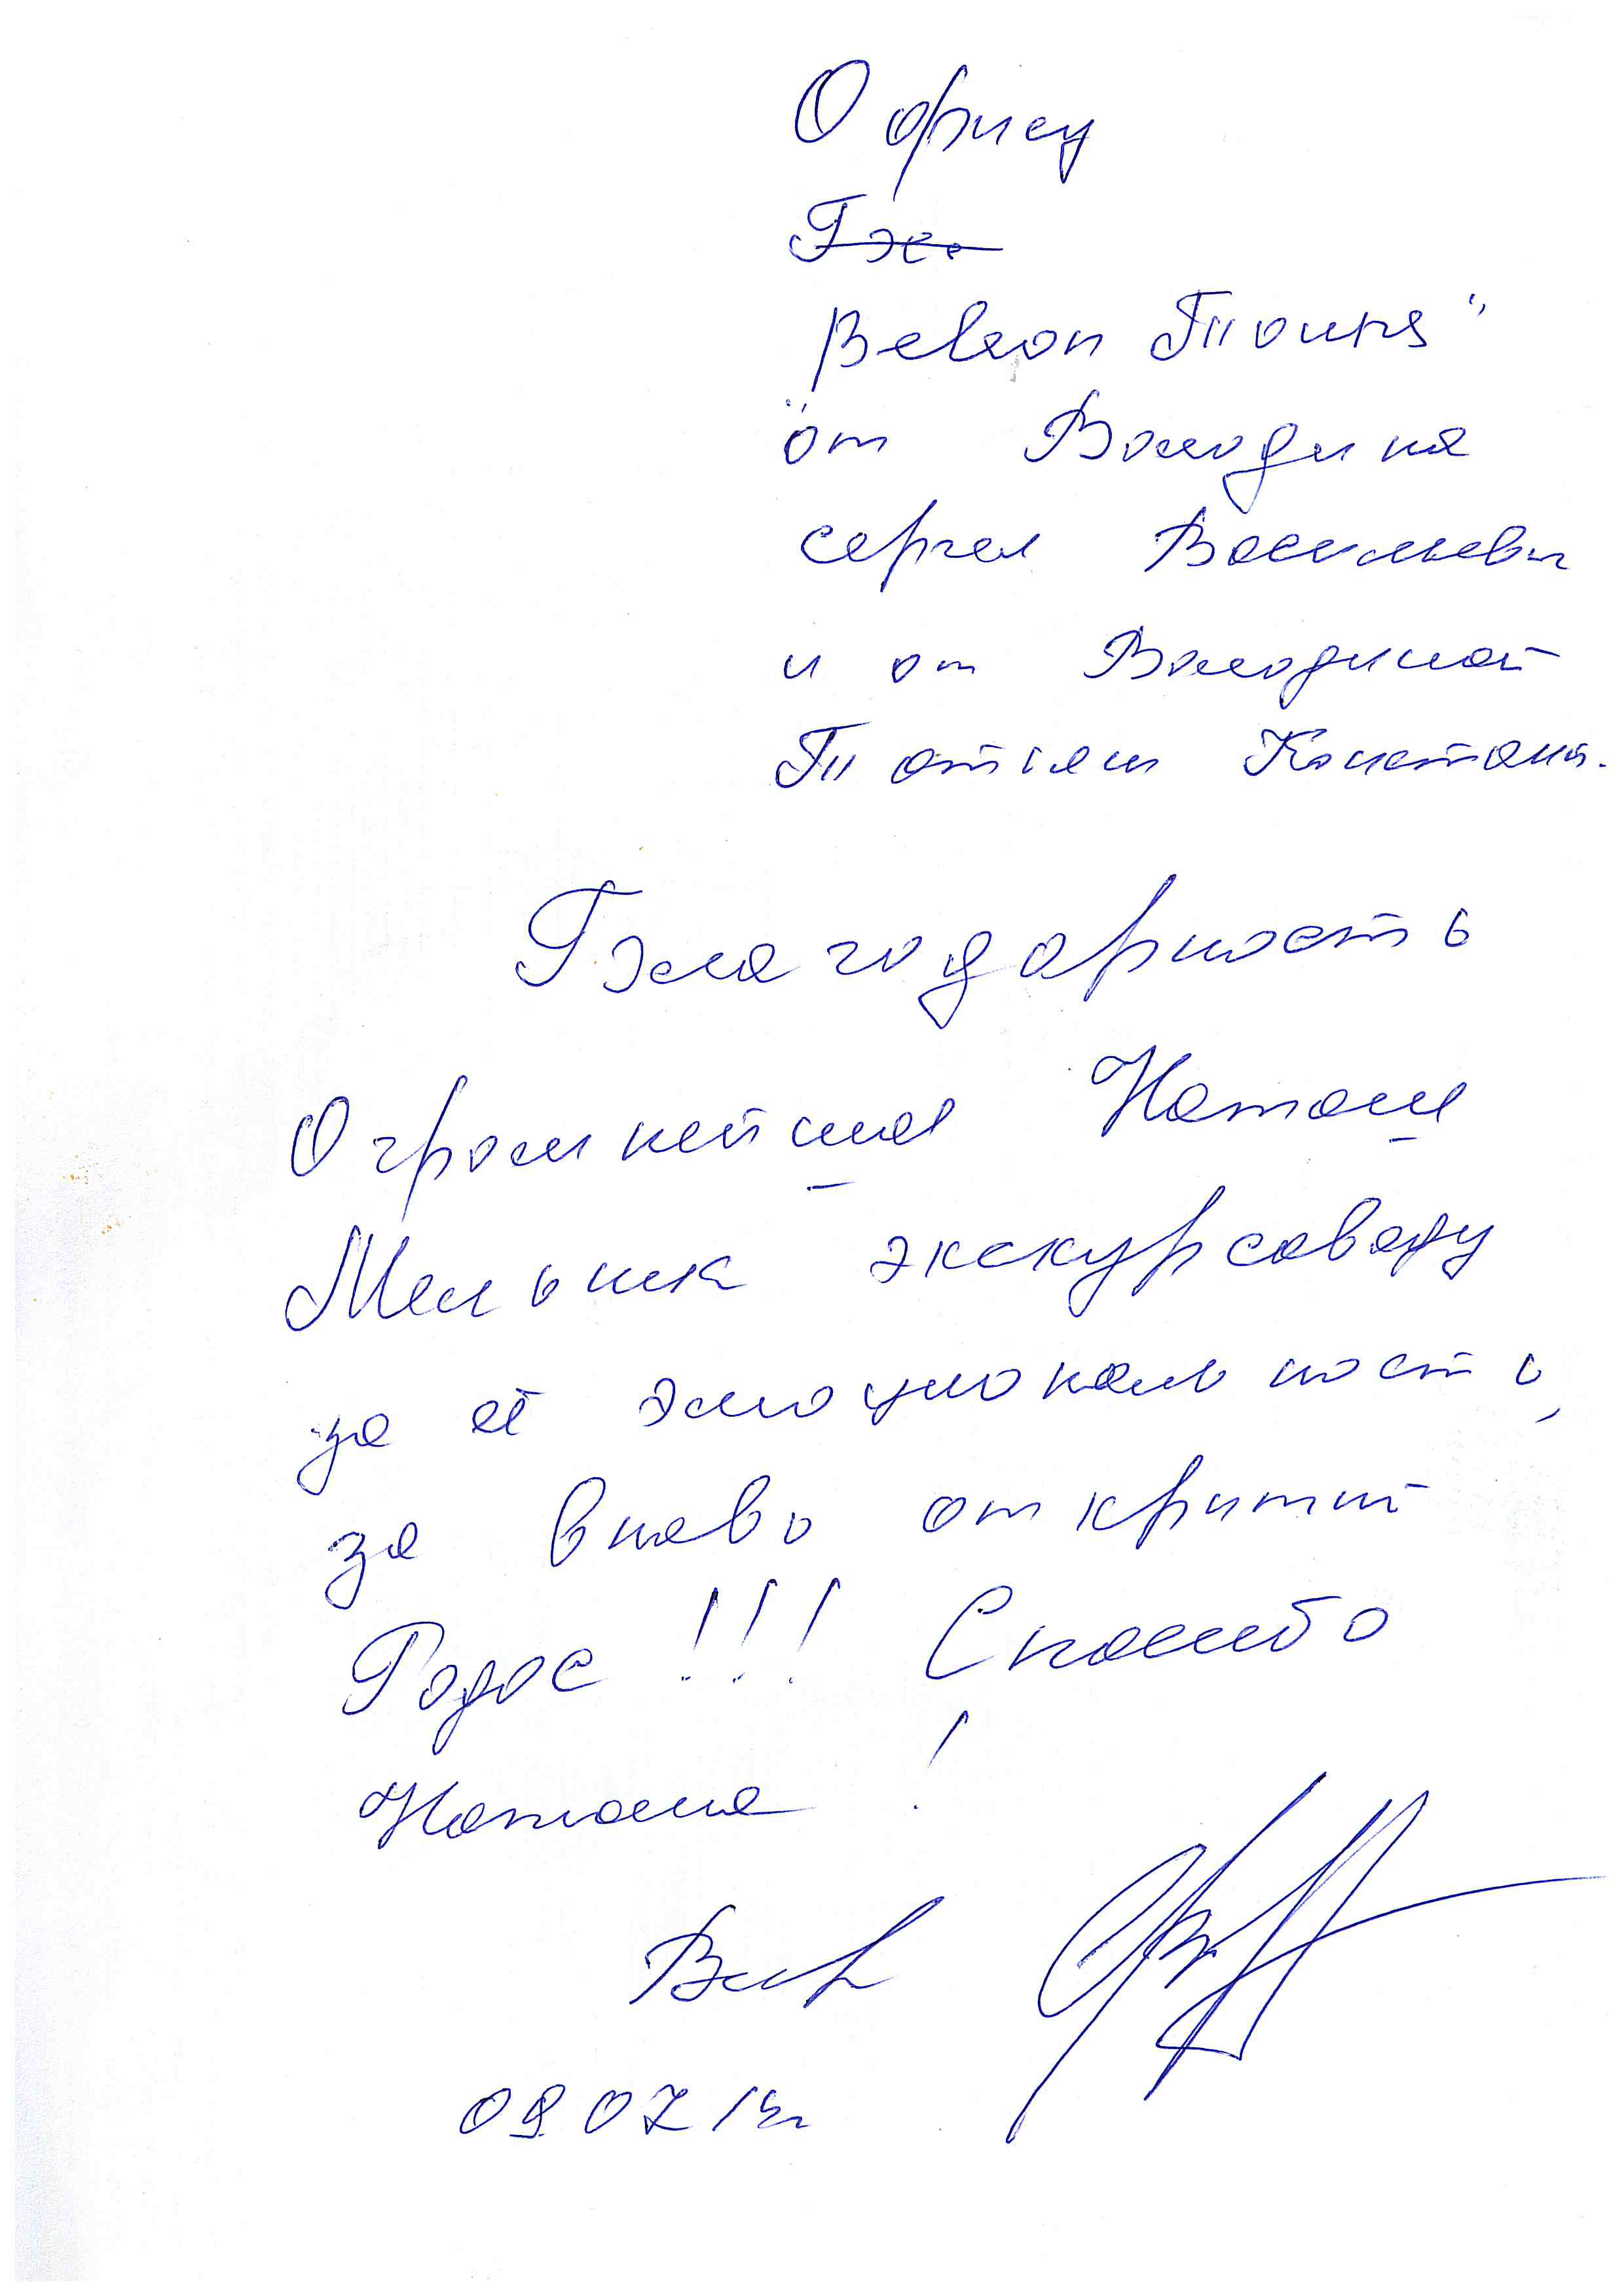 Офису
Beleon Tours"
"от Володина
Сергея Васильевич
и от Володиной
Татьяны Констант.
Благодарность
Огромнейшая Наташе
Мельник экскурсоводу
за её эмоциональность,
за вновь открытий
Родос!!! Спасибо
Наташа!
09 07